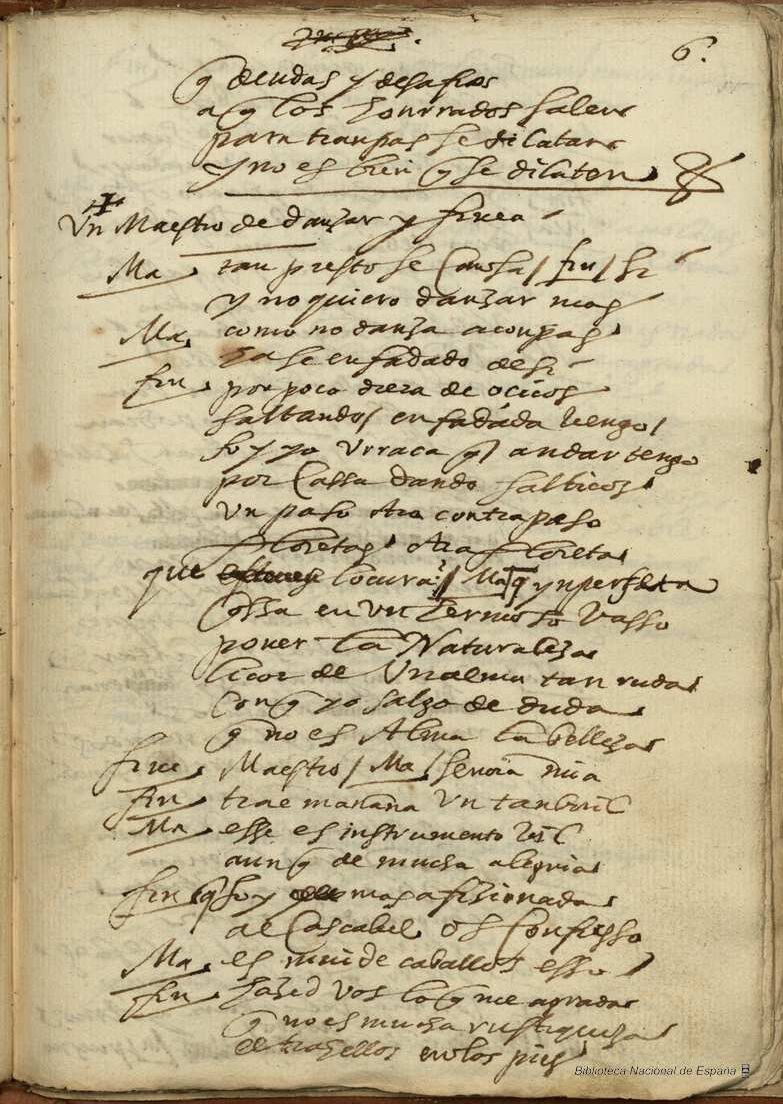 6.
q̃ deudas y desafios
a q̃ los honrrados salen
para tranpas se dilatan
y no es bien q̃ se dilaten
Un Maestro de danzar y finea
Ma tan presto se cansa / fin / si
y no quiero danzar mas
Ma como no danza a conpas
hase enfadado de si
fin por poco diera de ocicos
saltando / enfadada vengo /
soy yo Urraca q̃ andar tengo
por cassa dando salticos
un paso otro contrapaso
floretas otra floreta
que locura / Ma q̃ ynperfeta
cossa en un hermoso vasso
poner la Naturaleza
licor de Un alma tan ruda
con q̃ yo salgo de duda
q̃ no es Alma la belleza
fine Maestro / Ma / senora mia
fin trae mañana Un tanboril
Ma esse es instrumento vil
aunq̃ de mucha alegria
fin q̃ soy mas afizionada
al Cascabel os Confiesso
Ma es mui de caballos esso
fin hazed vos lo q̃ me agrada
q̃ no es mucha rustiqueza
el traellos en los pies
Biblioteca Nacional de España